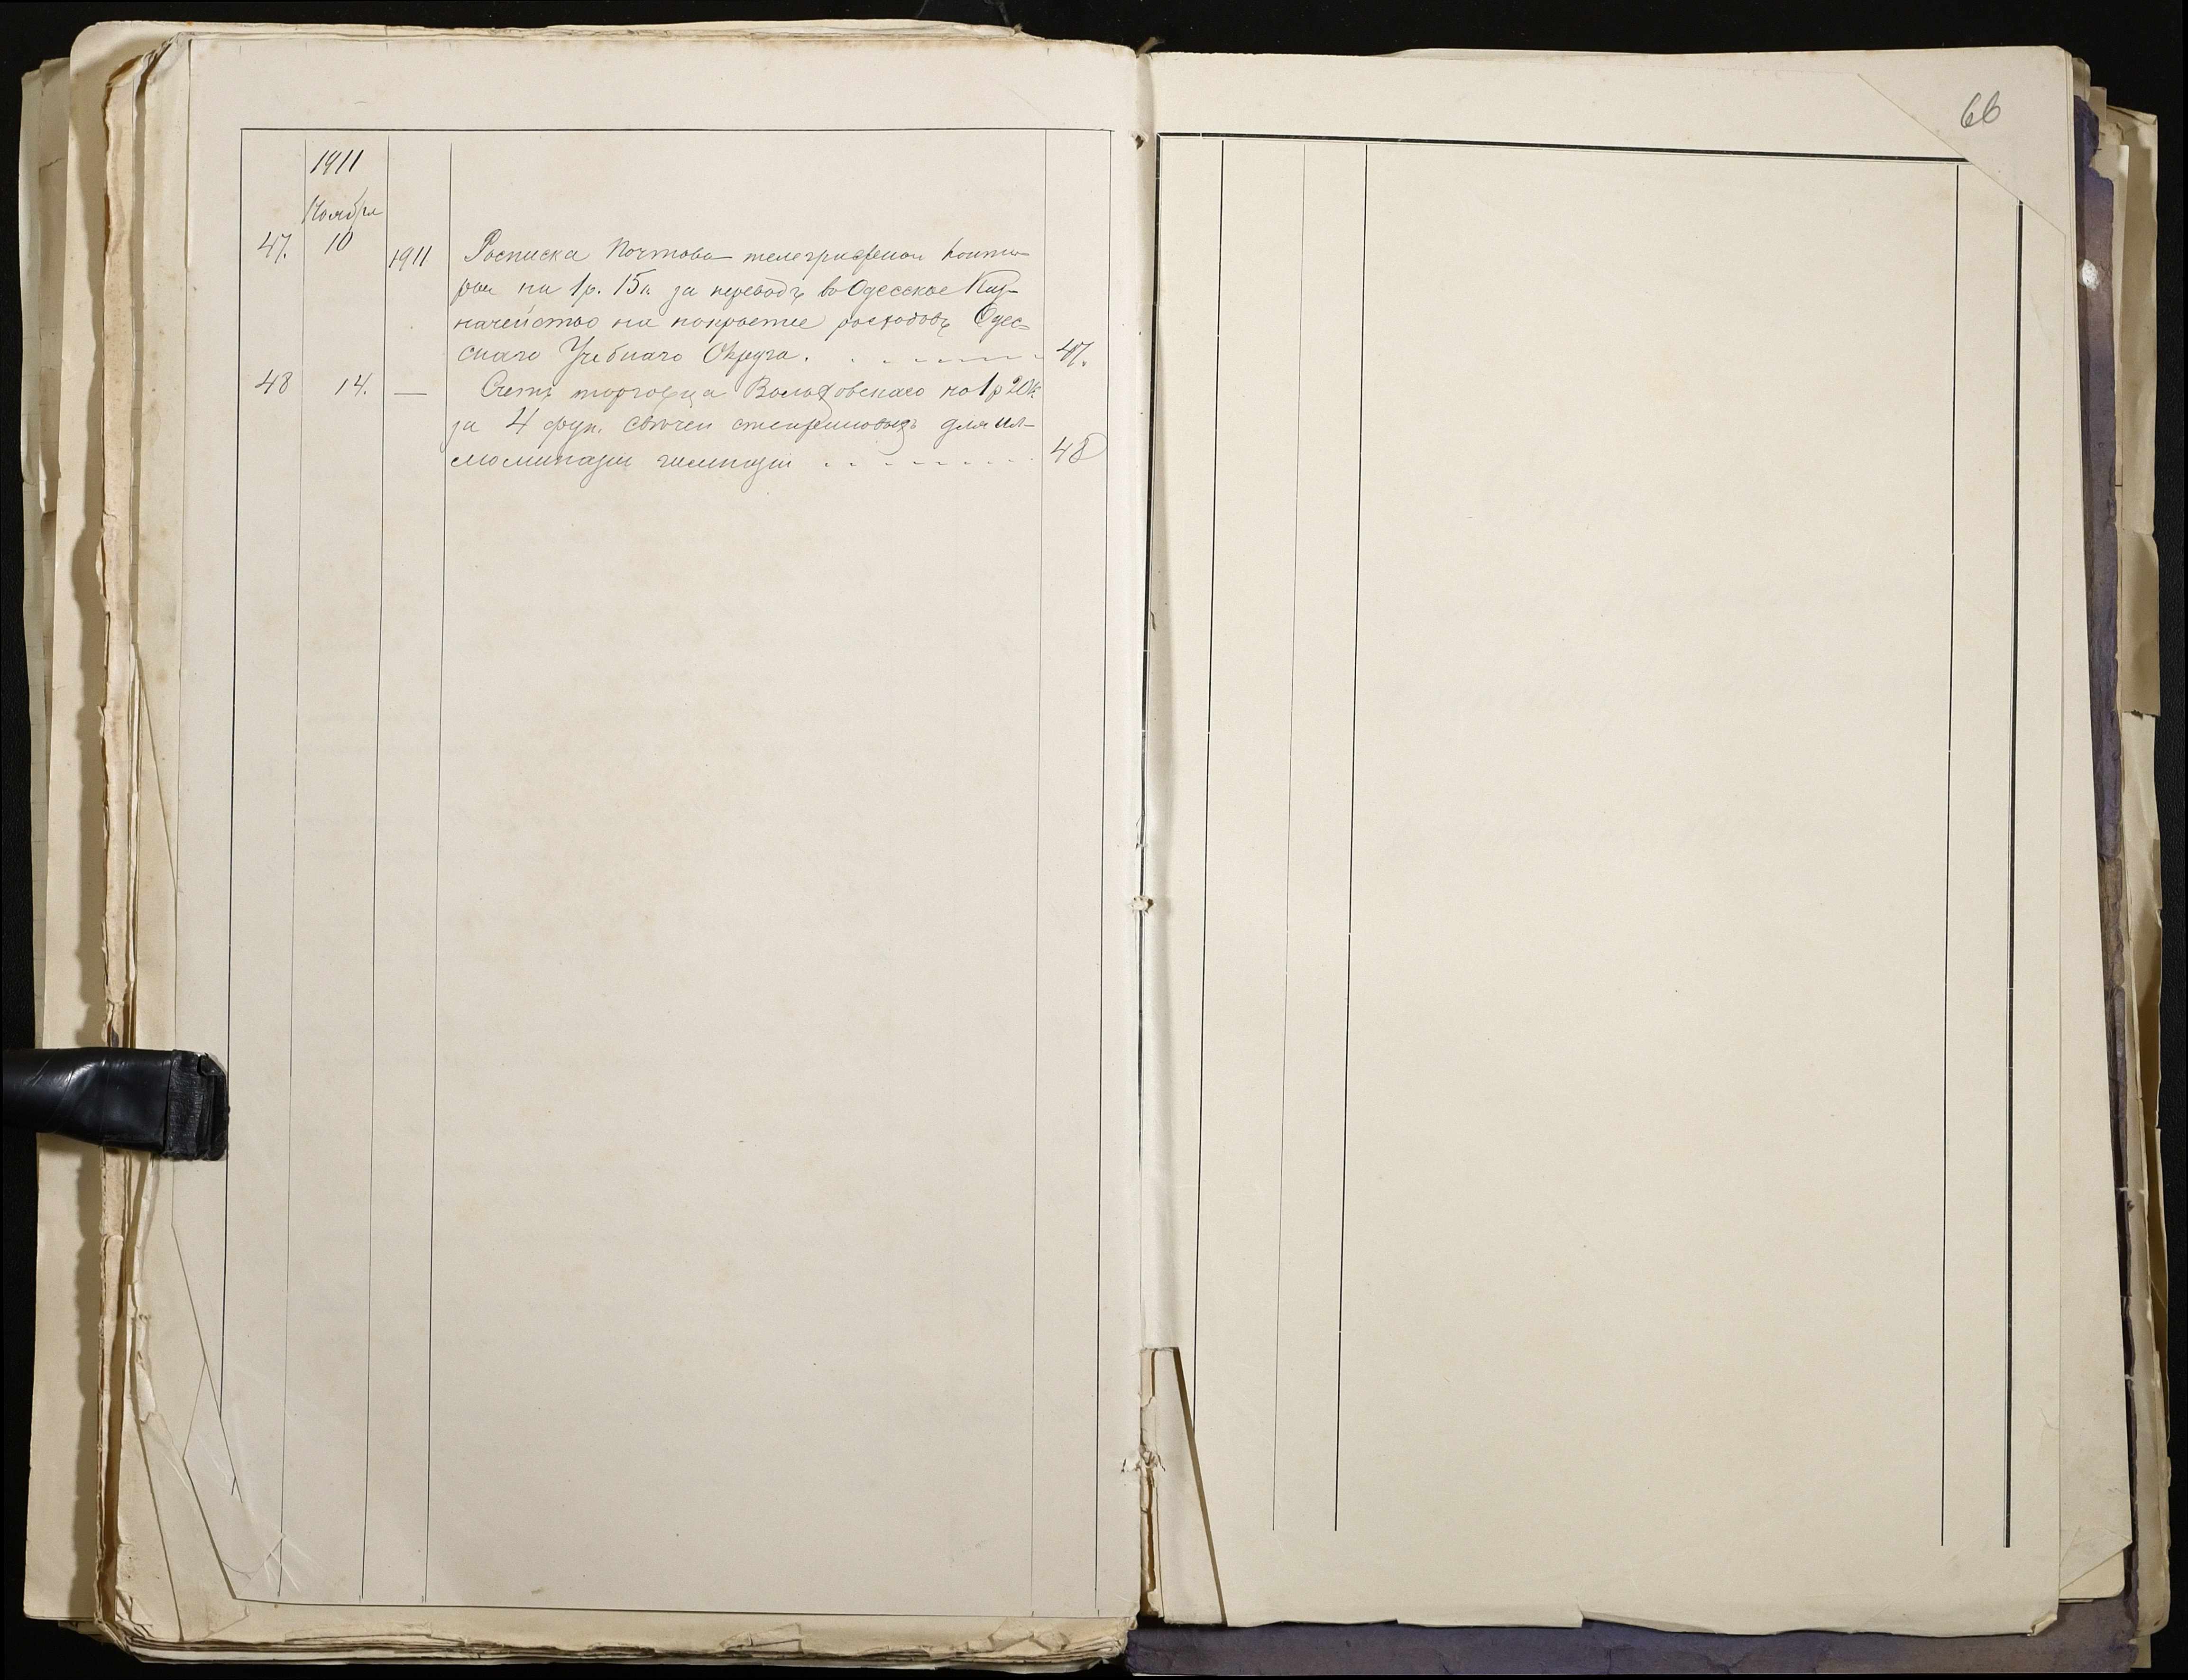 66
1911
Ноября
47. 10 1911 Росписка Почтово-телеграфной конто-
ры на 1р. 15к за переводъ во Одесское Каз-
начейство на покрытие расходовъ Одес-
скаго Учебнаго Округа. 47.
48 14. — Счетъ торговца на 1р 20к.
за 4 фун. свѣчей стеариновыхъ для ил-
люминаціи гимназіи 48